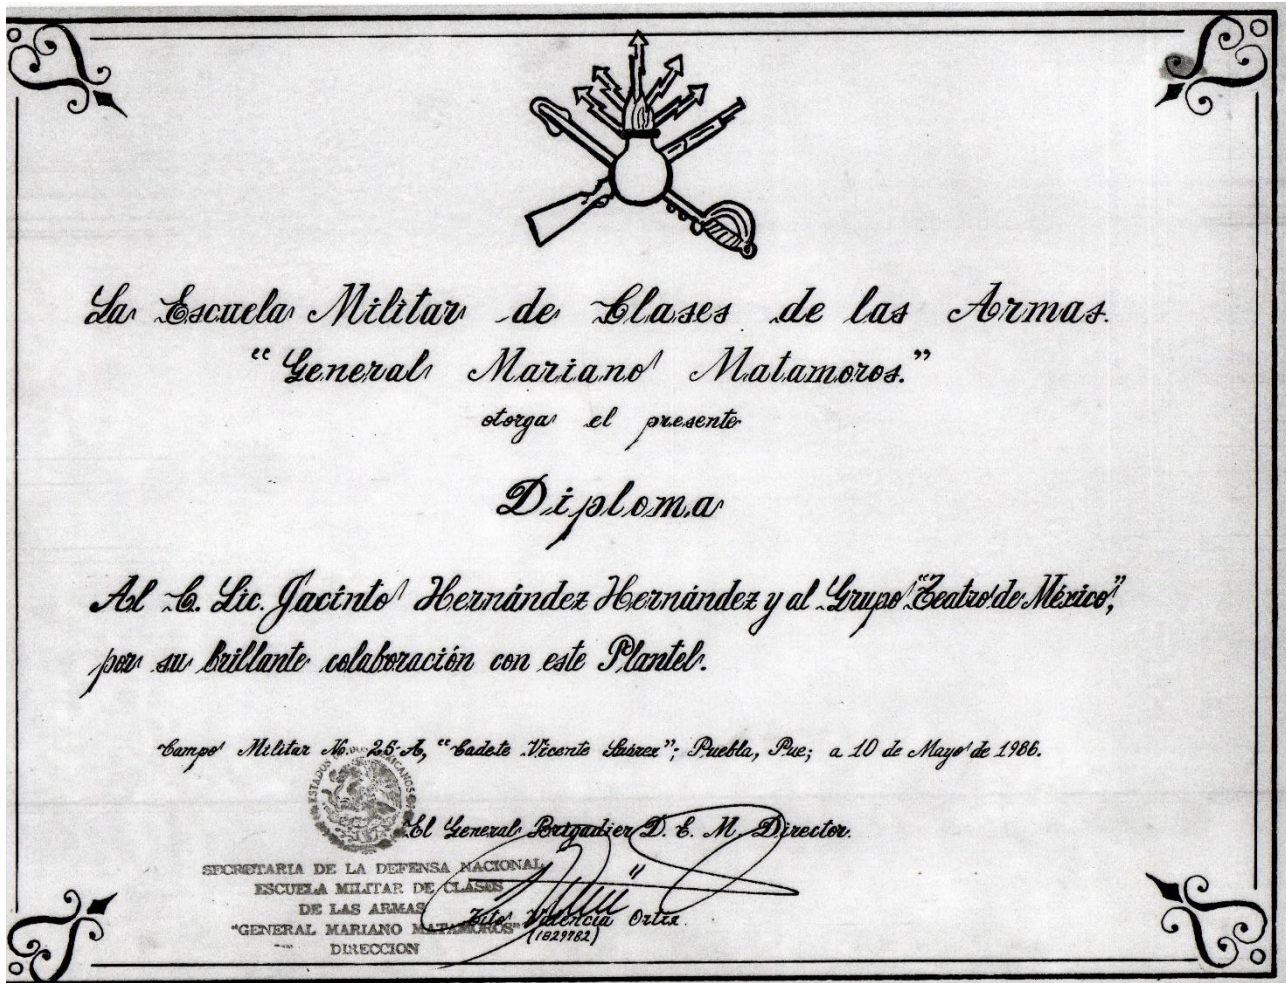 La Escuela Militar de Clases de las Armas.
"General Mariano Matamoros."
otorga el presente
Diploma
Al C. Lic. Jacinto Hernández Hernández y al Grupo "Teatro de México",
por su brillante colaboración con este Plantel.
Campo Militar No. 25-A, "Cadete Vicente Suárez"; Puebla, Pue; a 10 de Mayo de 1986.
El General Brigadier D. E. M. Director.
SECRETARIA DE LA DEFENSA NACIONAL
ESCUELA MILITAR DE CLASES
DE LAS ARMAS
"GENERAL MARIANO MATAMOROS"
DIRECCION
Tito Valencia Ortiz.
(1829782)